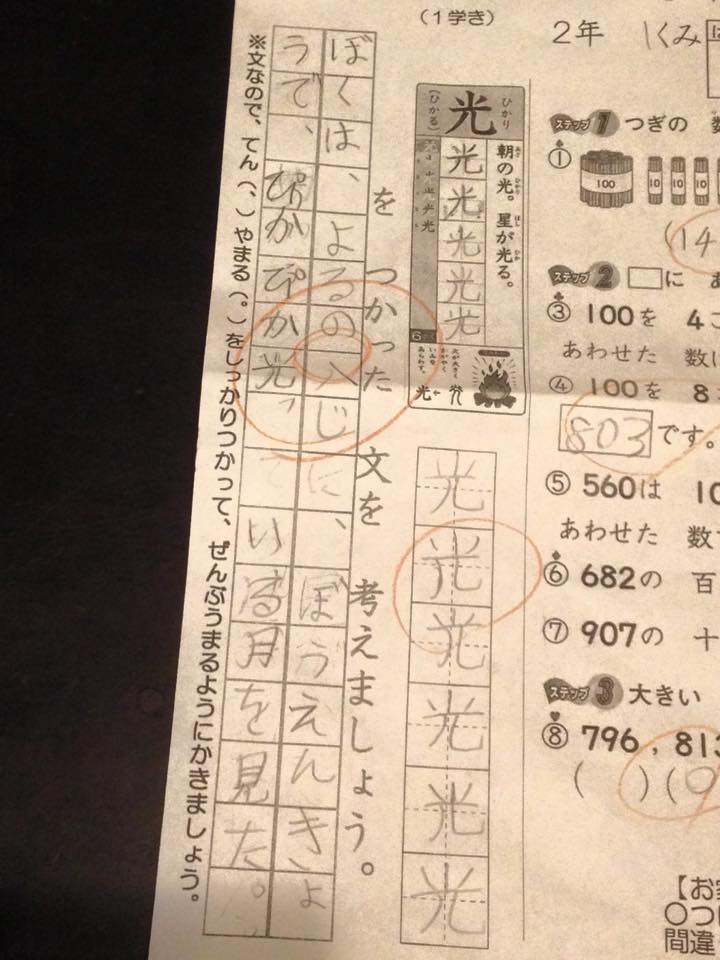 (1学き)
2年 1くみ
ステップ1 つぎの
①
100 10 10 10
(14
ステップ2 □に
③ 100を 4こ
あわせた 数に
④ 100を 8
803 です。
⑤ 560は 10
あわせた 数
⑥ 682の 百
⑦ 907の 十
ステップ3 大きい
⑧ 796, 813
( ) (9
【お
○つ
間違
光
ひかり
(ひかる)
朝の光。星が光る。
あさ ひかり ほし ひか
光
光
光
光
光
火が大きく
かがやく
いみを
あらわす。
光
光
光
光
光
光
光
をつかった 文を 考えましょう。
ぼくは、よるの八じに、ぼうえんきょ
うで、ぴかぴか光っている月を見た。
※文なので、てん(、)やまる(。)をしっかりつかって、ぜんぶうまるようにかきましょう。